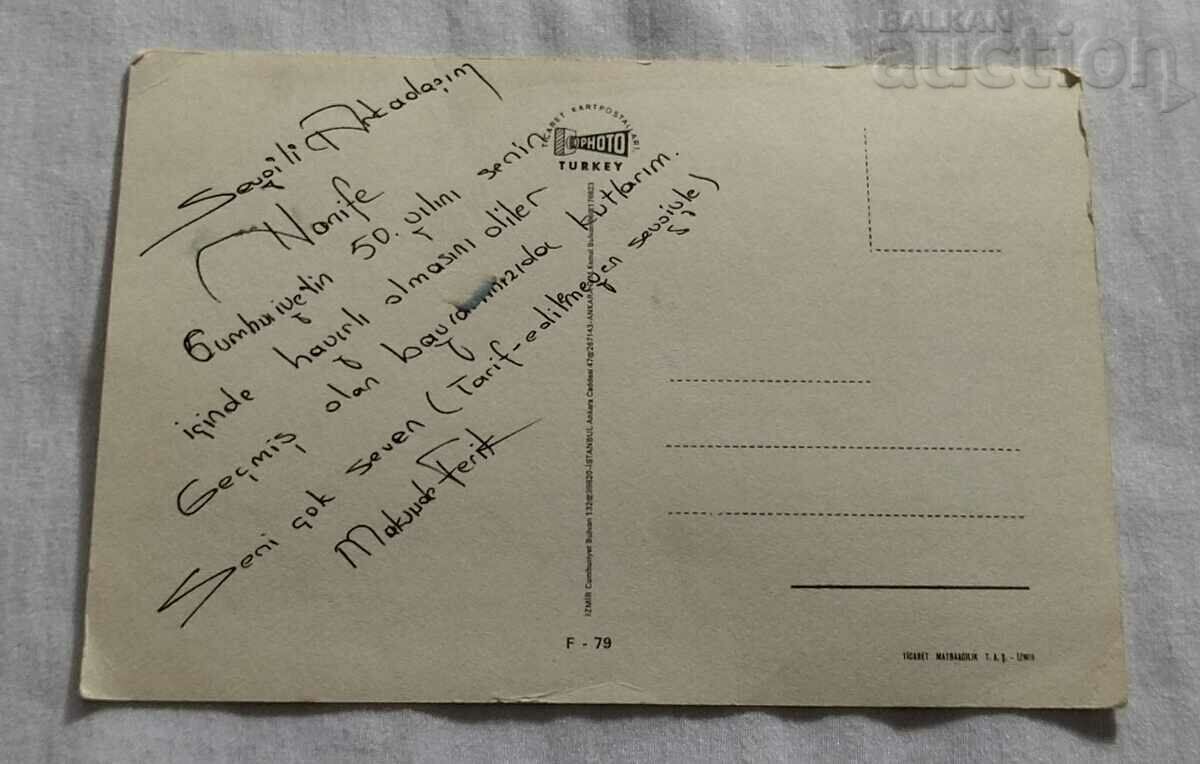 BALKAN
auction
Sevgili Arkadaşım
Hanife
Cumhuriyetin 50. yılını senin
içinde hayırlı olmasını diler
Geçmiş olan bayramınızıda kutlarım.
Seni çok seven (Tarif-edilmeyen sevgiyle)
Maksude Ferik
TİCARET KARTPOSTALLARI
PHOTO
TURKEY
İZMİR Cumhuriyet Bulvarı 132 İSTANBUL Ankara Caddesi 47 267143-ANKARA
F - 79
TİCARET MATBAACILIK T. A. Ş. - İZMİR